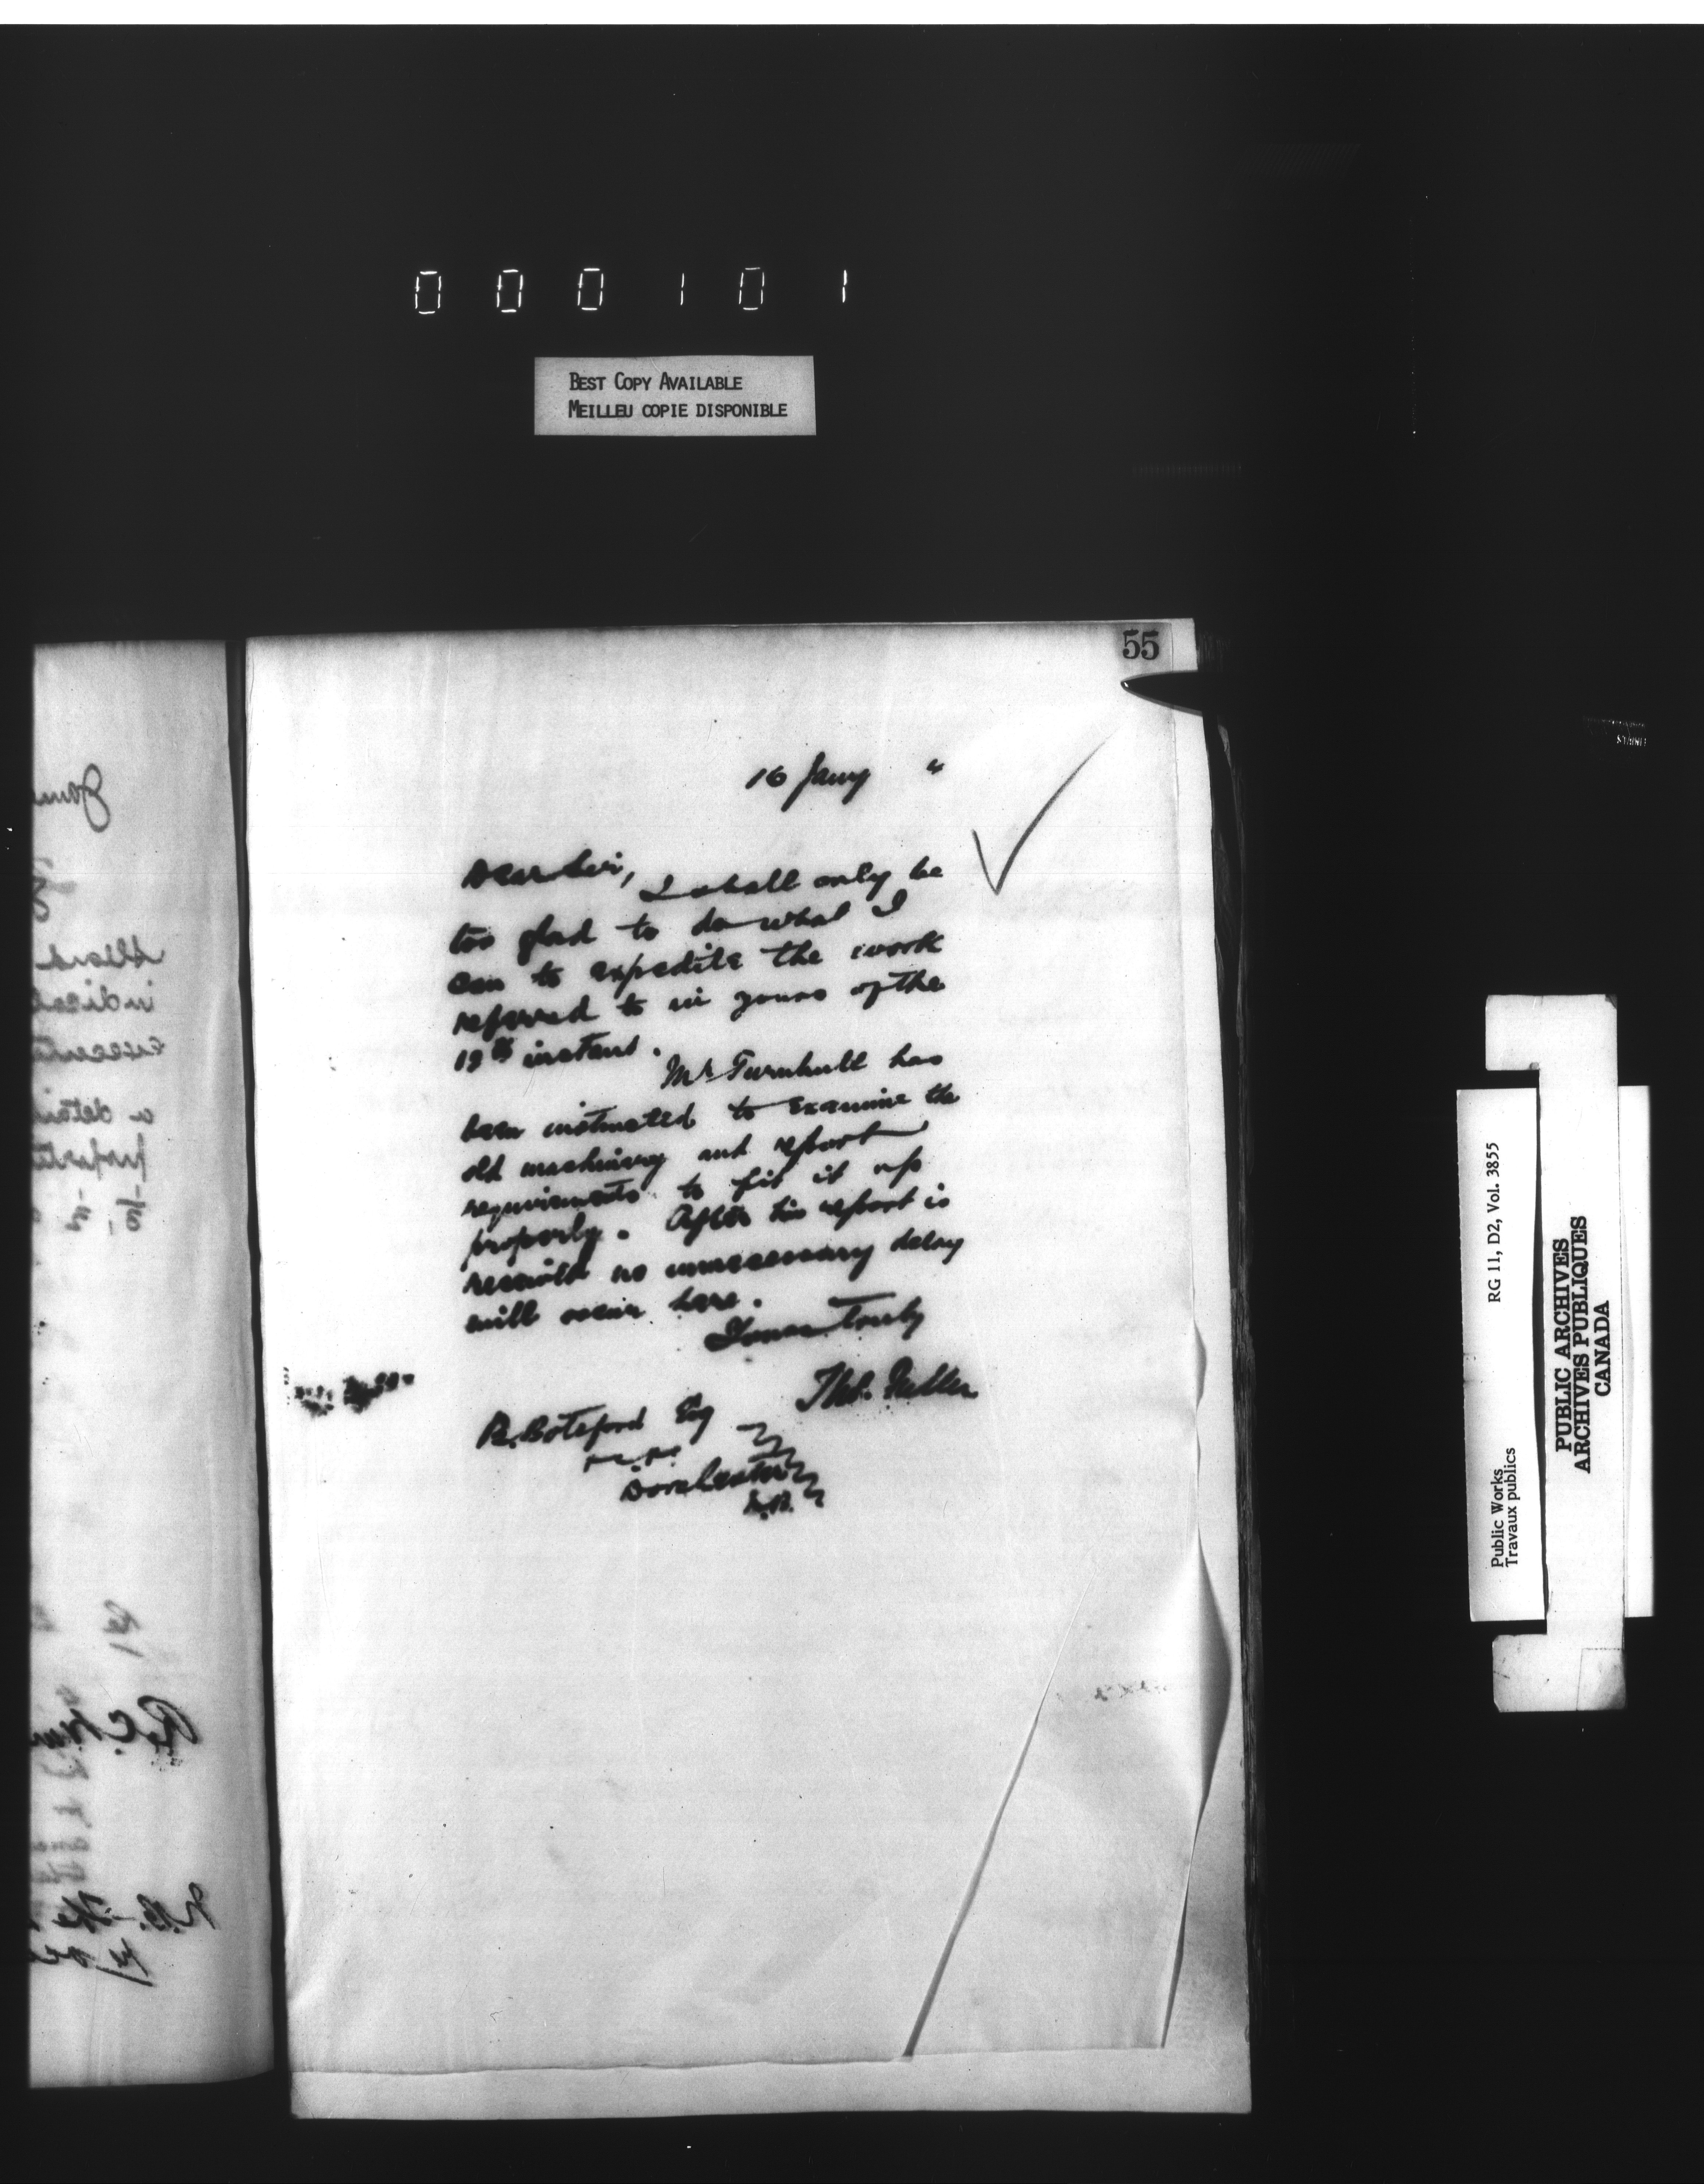 000101
BEST COPY AVAILABLE
MEILLEU COPIE DISPONIBLE
55
16 Jany "
Dear Sir,
I shall only be
too glad to do what I
can to expedite the work
referred to in yours of the
instant.
Mr Turnbull has
been instructed to examine the
old machinery and report
requirements to fit it up
properly. After his report is
received no unnecessary delay
will occur here.
Yours truly
Thos. Fuller
B. Botsford Esq
Dorchester
N.B.
RG 11, D2, Vol. 3855
Public Works
Travaux publics
PUBLIC ARCHIVES
ARCHIVES PUBLIQUES
CANADA